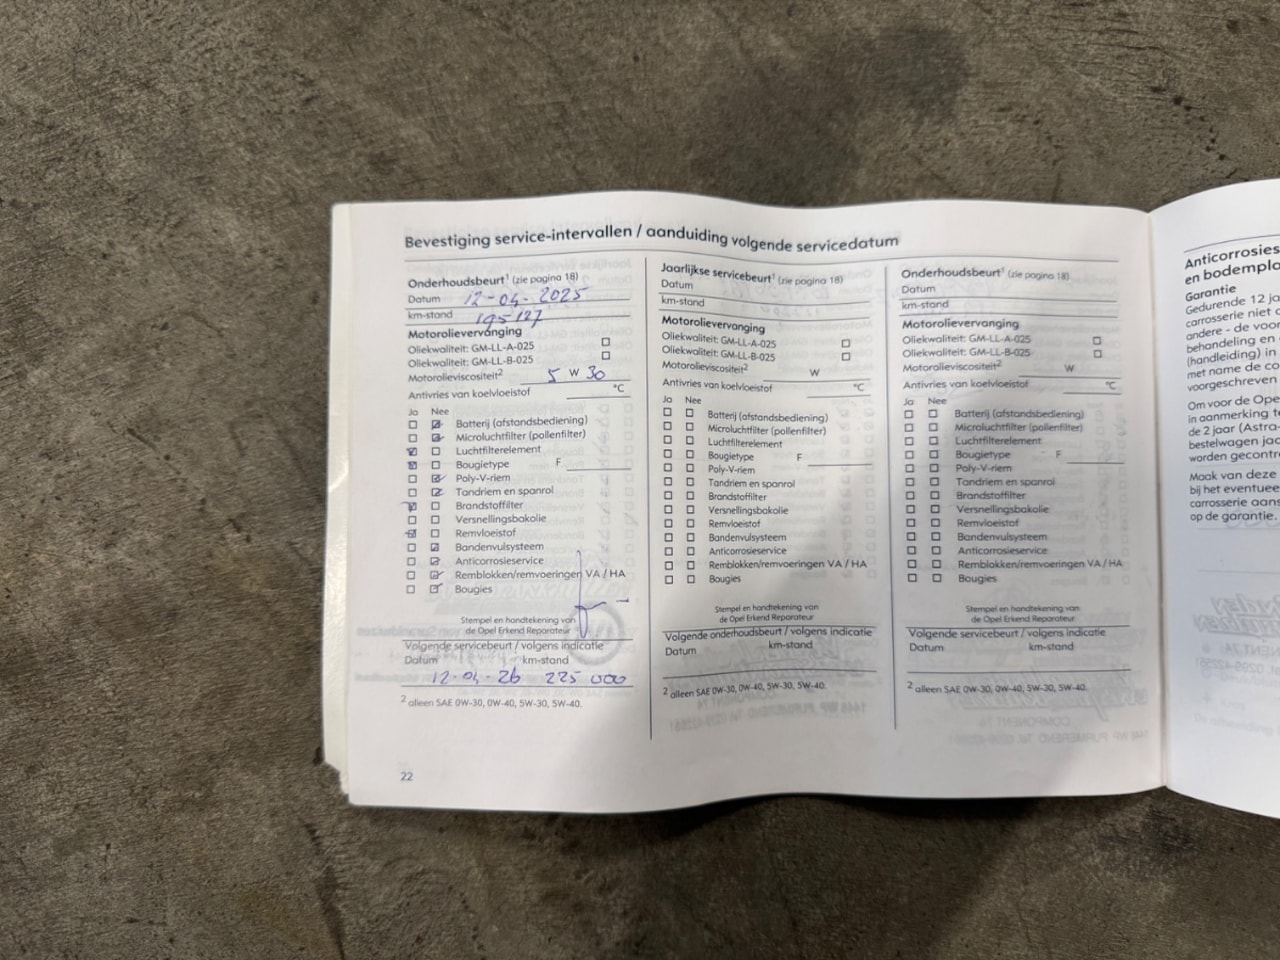 Bevestiging service-intervallen / aanduiding volgende servicedatum
Onderhoudsbeurt¹ (zie pagina 18)
Datum 12-04-2025
km-stand 195 127
Motorolievervanging
Oliekwaliteit: GM-LL-A-025
Oliekwaliteit: GM-LL-B-025
Motorolieviscositeit² 5 W 30
Antivries van koelvloeistof °C
Ja Nee
Batterij (afstandsbediening)
Microluchtfilter (pollenfilter)
Luchtfilterelement
Bougietype F
Poly-V-riem
Tandriem en spanrol
Brandstoffilter
Versnellingsbakolie
Remvloeistof
Bandenvulsysteem
Anticorrosieservice
Remblokken/remvoeringen VA / HA
Bougies
Stempel en handtekening van
de Opel Erkend Reparateur
Volgende servicebeurt / volgens indicatie
Datum km-stand
12-04-26 225 000
² alleen SAE 0W-30, 0W-40, 5W-30, 5W-40.
22
Jaarlijkse servicebeurt¹ (zie pagina 18)
Datum
km-stand
Motorolievervanging
Oliekwaliteit: GM-LL-A-025
Oliekwaliteit: GM-LL-B-025
Motorolieviscositeit² W
Antivries van koelvloeistof °C
Ja Nee
Batterij (afstandsbediening)
Microluchtfilter (pollenfilter)
Luchtfilterelement
Bougietype F
Poly-V-riem
Tandriem en spanrol
Brandstoffilter
Versnellingsbakolie
Remvloeistof
Bandenvulsysteem
Anticorrosieservice
Remblokken/remvoeringen VA / HA
Bougies
Stempel en handtekening van
de Opel Erkend Reparateur
Volgende onderhoudsbeurt / volgens indicatie
Datum km-stand
² alleen SAE 0W-30, 0W-40, 5W-30, 5W-40.
Onderhoudsbeurt¹ (zie pagina 18)
Datum
km-stand
Motorolievervanging
Oliekwaliteit: GM-LL-A-025
Oliekwaliteit: GM-LL-B-025
Motorolieviscositeit² W
Antivries van koelvloeistof °C
Ja Nee
Batterij (afstandsbediening)
Microluchtfilter (pollenfilter)
Luchtfilterelement
Bougietype F
Poly-V-riem
Tandriem en spanrol
Brandstoffilter
Versnellingsbakolie
Remvloeistof
Bandenvulsysteem
Anticorrosieservice
Remblokken/remvoeringen VA / HA
Bougies
Stempel en handtekening van
de Opel Erkend Reparateur
Volgende servicebeurt / volgens indicatie
Datum km-stand
² alleen SAE 0W-30, 0W-40, 5W-30, 5W-40.
Anticorrosies
en bodempla
Garantie
Gedurende 12 ja
carrosserie niet c
andere - de voor
behandeling en
(handleiding) in
met name de co
voorgeschreven
Om voor de Ope
in aanmerking te
de 2 jaar (Astra-
bestelwagen jaa
worden gecontr
Maak van deze
bij het eventuee
carrosserie aans
op de garantie.